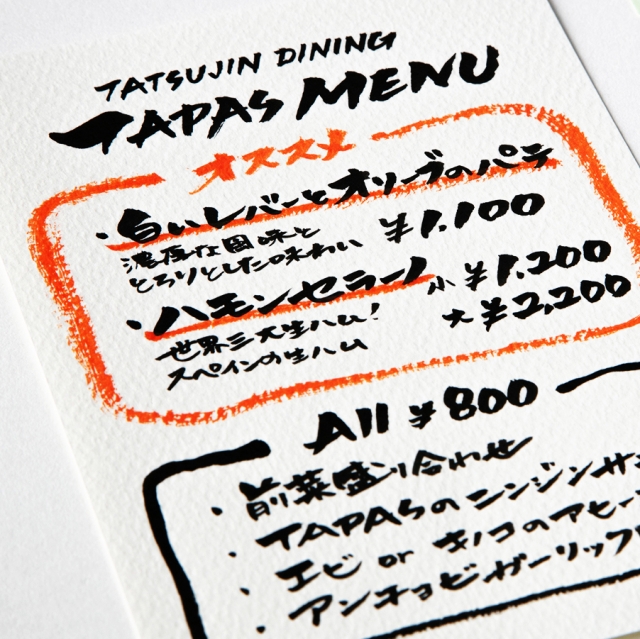 TATSUJIN DINING
TAPAS MENU
オススメ
・白いレバーとオリーブのパテ
濃厚な風味と
とろりとした味わい ¥1,100
・ハモンセラーノ 小 ¥1,200
世界三大生ハム! 大 ¥2,200
スペインの生ハム
All ¥800
・前菜盛り合わせ
・TAPASのニンジンサ
・エビ or キノコのアヒー
・アンチョビガーリックフ